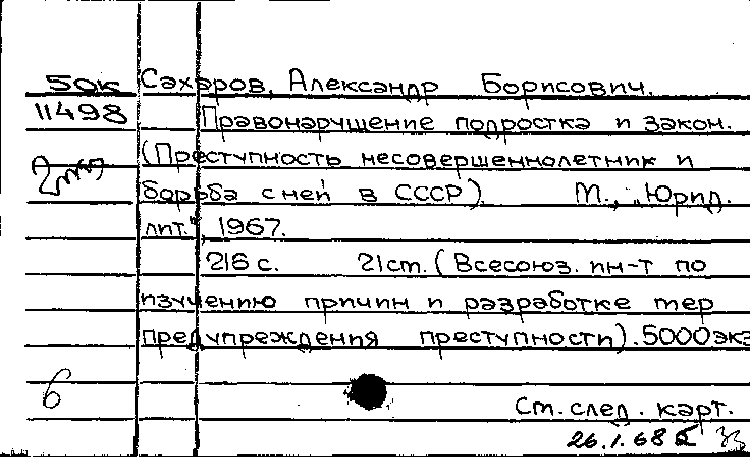 50к Сахаров, Александр Борисович.
11498 Правонарушение подростка и закон.
(Преступность несовершеннолетних и
борьба с ней в СССР). М., „Юрид.
лит.", 1967.
216 с. 21см. (Всесоюз. ин-т по
изучению причин и разработке мер
предупреждения преступности). 5000 экз
6
См. след. карт.
26.1.68